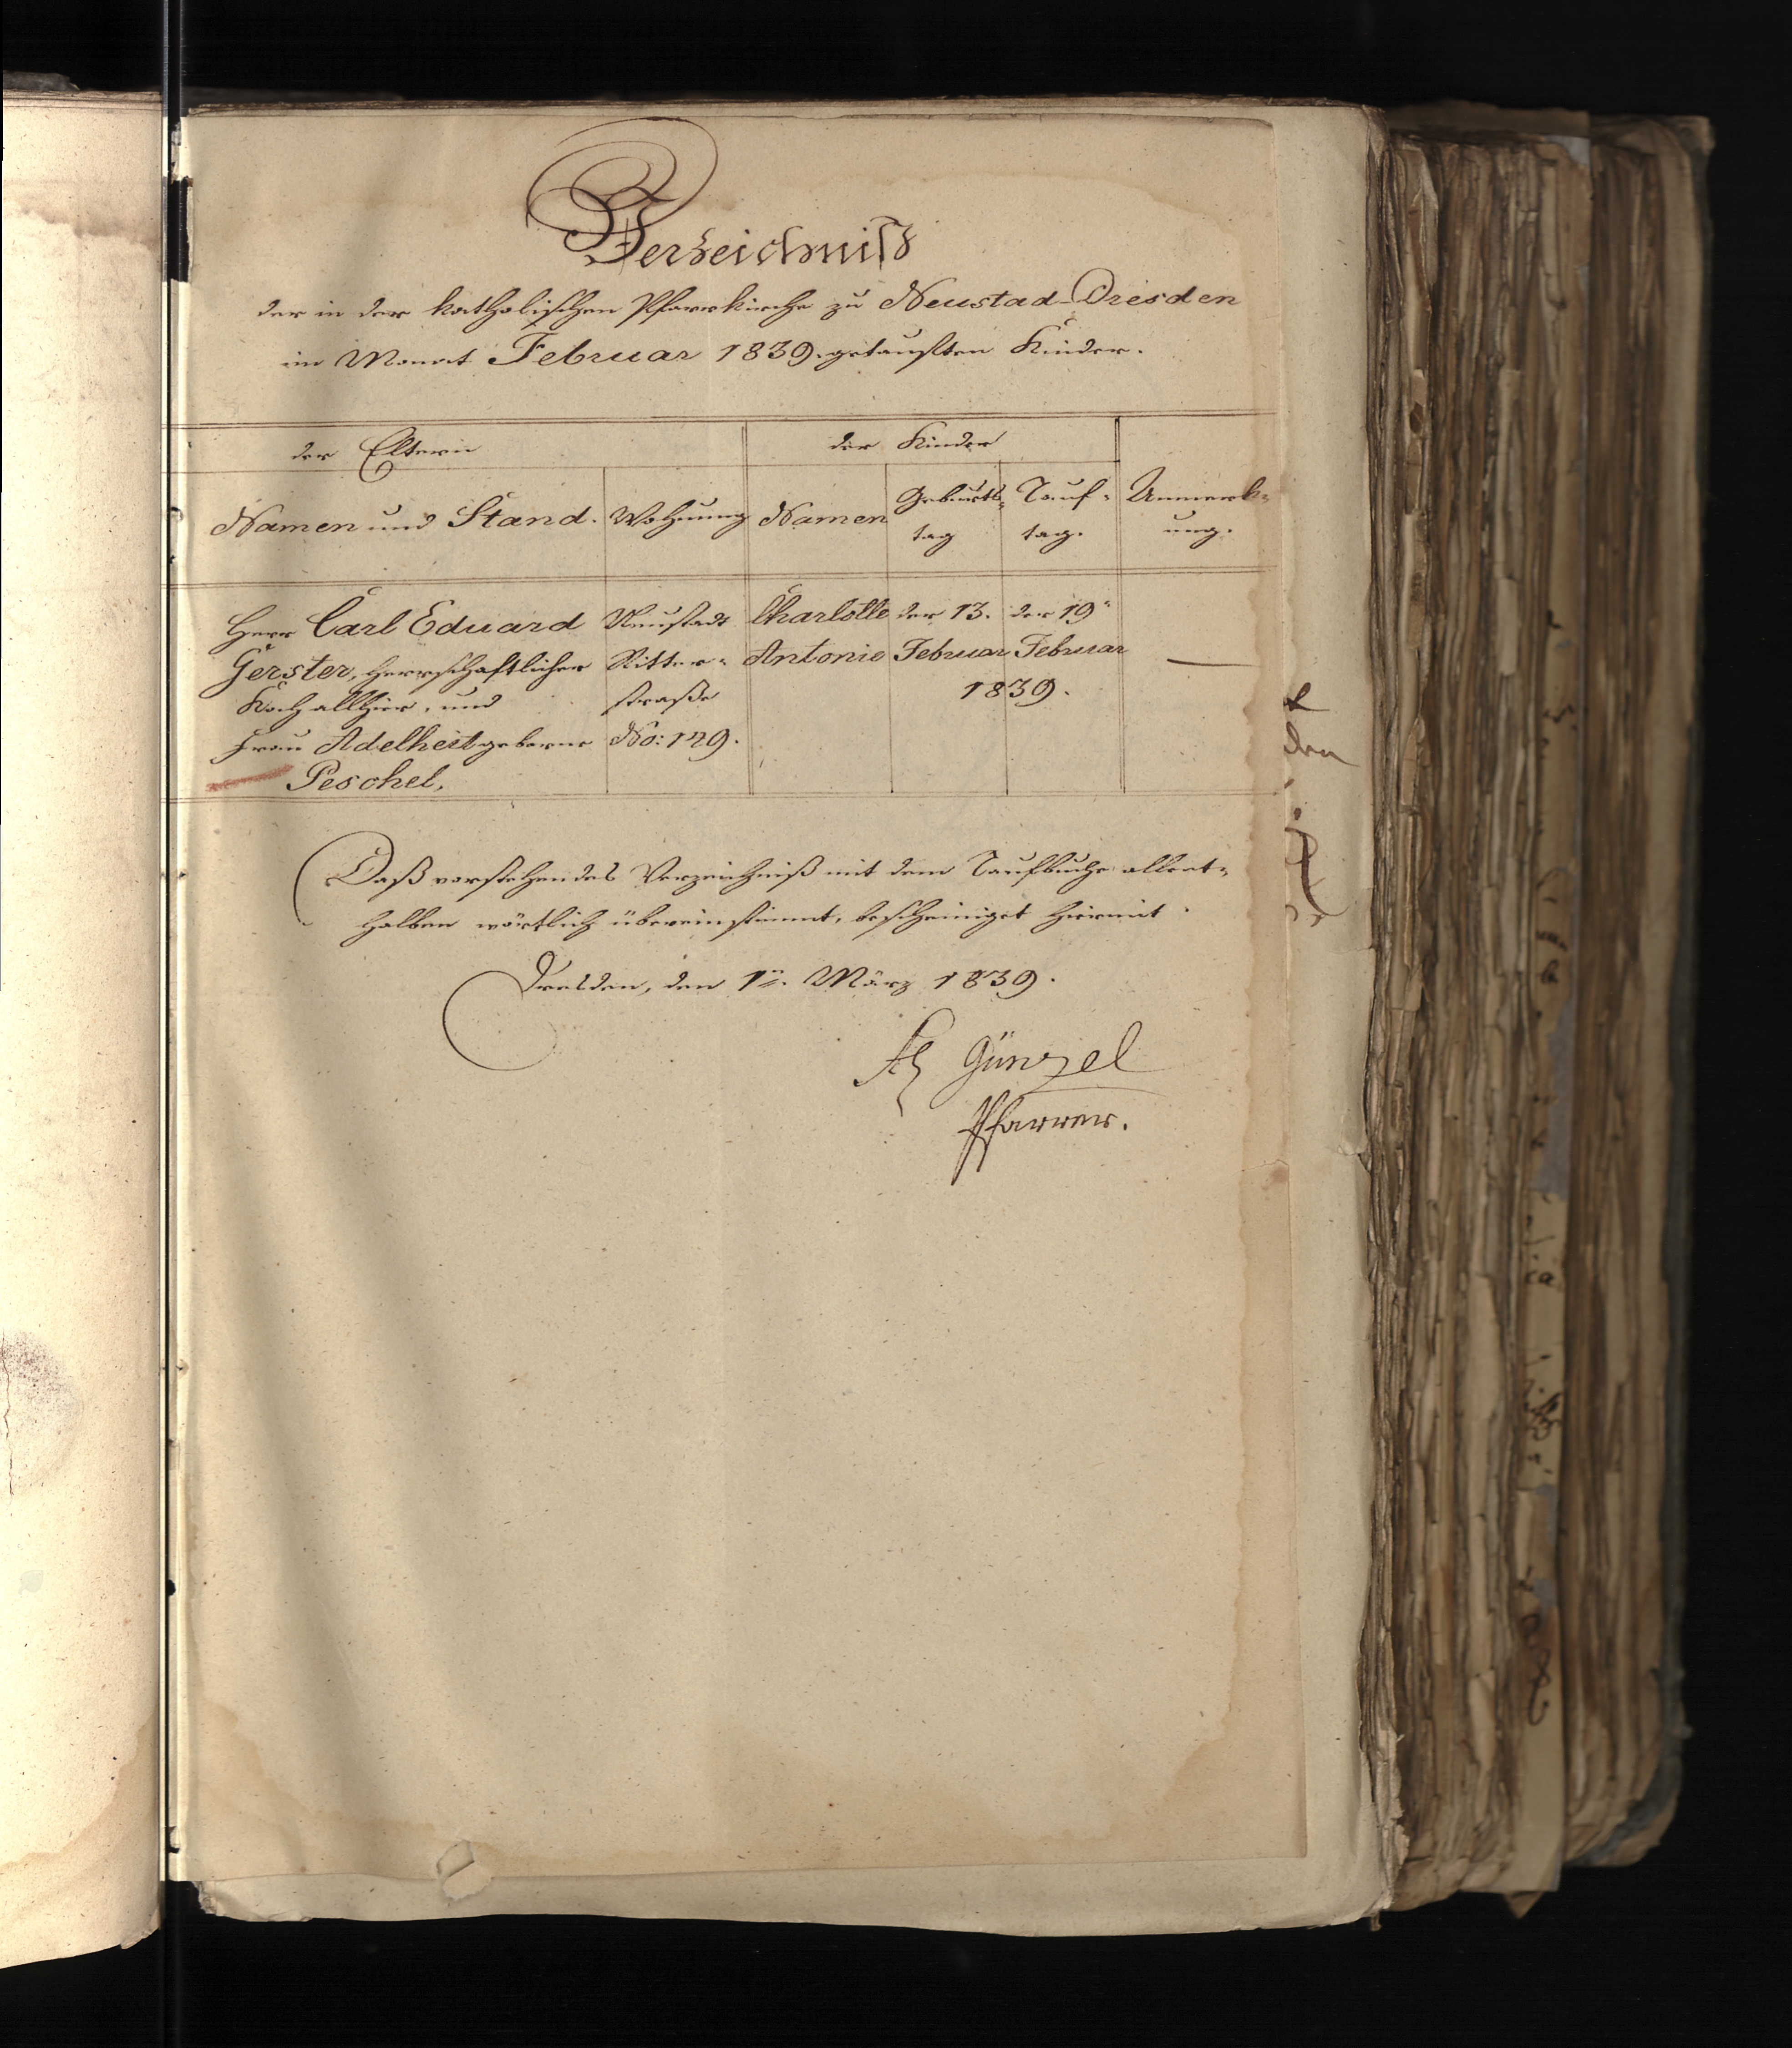 Verzeichniß
der in der katholischen Pfarrkirche zu Neustad-Dresden
im Monat Februar 1839. getauften Kinder.
der Eltern
der Kinder
Namen und Stand.
Wohnung
Namen
Geburts-
tag
Tauf-
tag.
Anmerk-
ung.
Herr Carl Eduard
Gerster, herrschaftlicher
Koch allhier, und
Frau Adelheit geborne
Peschel,
Neustadt
Ritter-
straße
No: 129.
Charlotte
Antonie
der 13.
Februar
der 19.
Februar
1839.
Daß vorstehendes Verzeichniß mit dem Taufbuche allent-
halben wörtlich übereinstimmt, bescheiniget hiermit
Dresden, den 1. März 1839.
Günzel
Pfarrer.